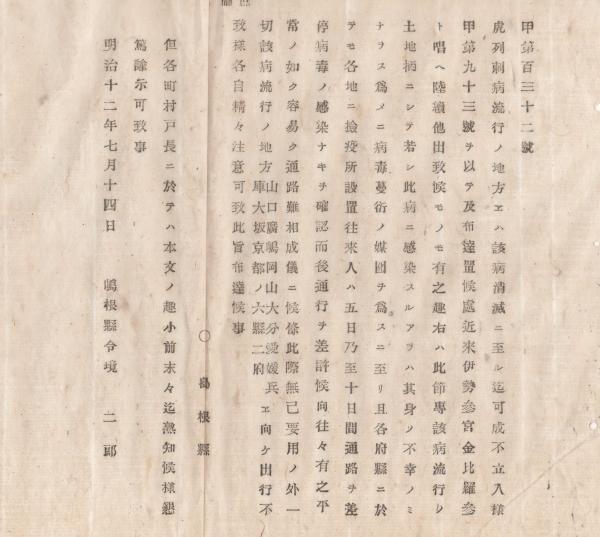 甲第百三十二號
虎列剌病流行ノ地方エハ該病消滅ニ至ル迄可成不立入樣
甲第九十三號ヲ以テ及布達置候處近來伊勢參宮金比羅參
ト唱ヘ陸續他出致候モノモ有之趣右ハ此節專該病流行ノ
土地柄ニシテ若シ此病ニ感染スルアラハ其身ノ不幸ノミ
ナラス爲メニ病毒蔓衍ノ媒囮ヲ爲スニ至リ且各府縣ニ於
テモ各地ニ撿疫所設置往來人ハ五日乃至十日間通路ヲ差
停病毒ノ感染ナキヲ確認而後通行ヲ差許候向往々有之平
常ノ如ク容易ク通路難相成儀ニ候條此際無已要用ノ外一
切該病流行ノ地方山口廣嶋岡山大分愛媛兵庫大坂京都ノ六縣二府エ向ケ出行不
致樣各自精々注意可致此旨布達候事
〇 島根縣
但各町村戸長ニ於テハ本文ノ趣小前末々迄熟知候樣懇
篤諭示可致事
明治十二年七月十四日 嶋根縣令境 二郎